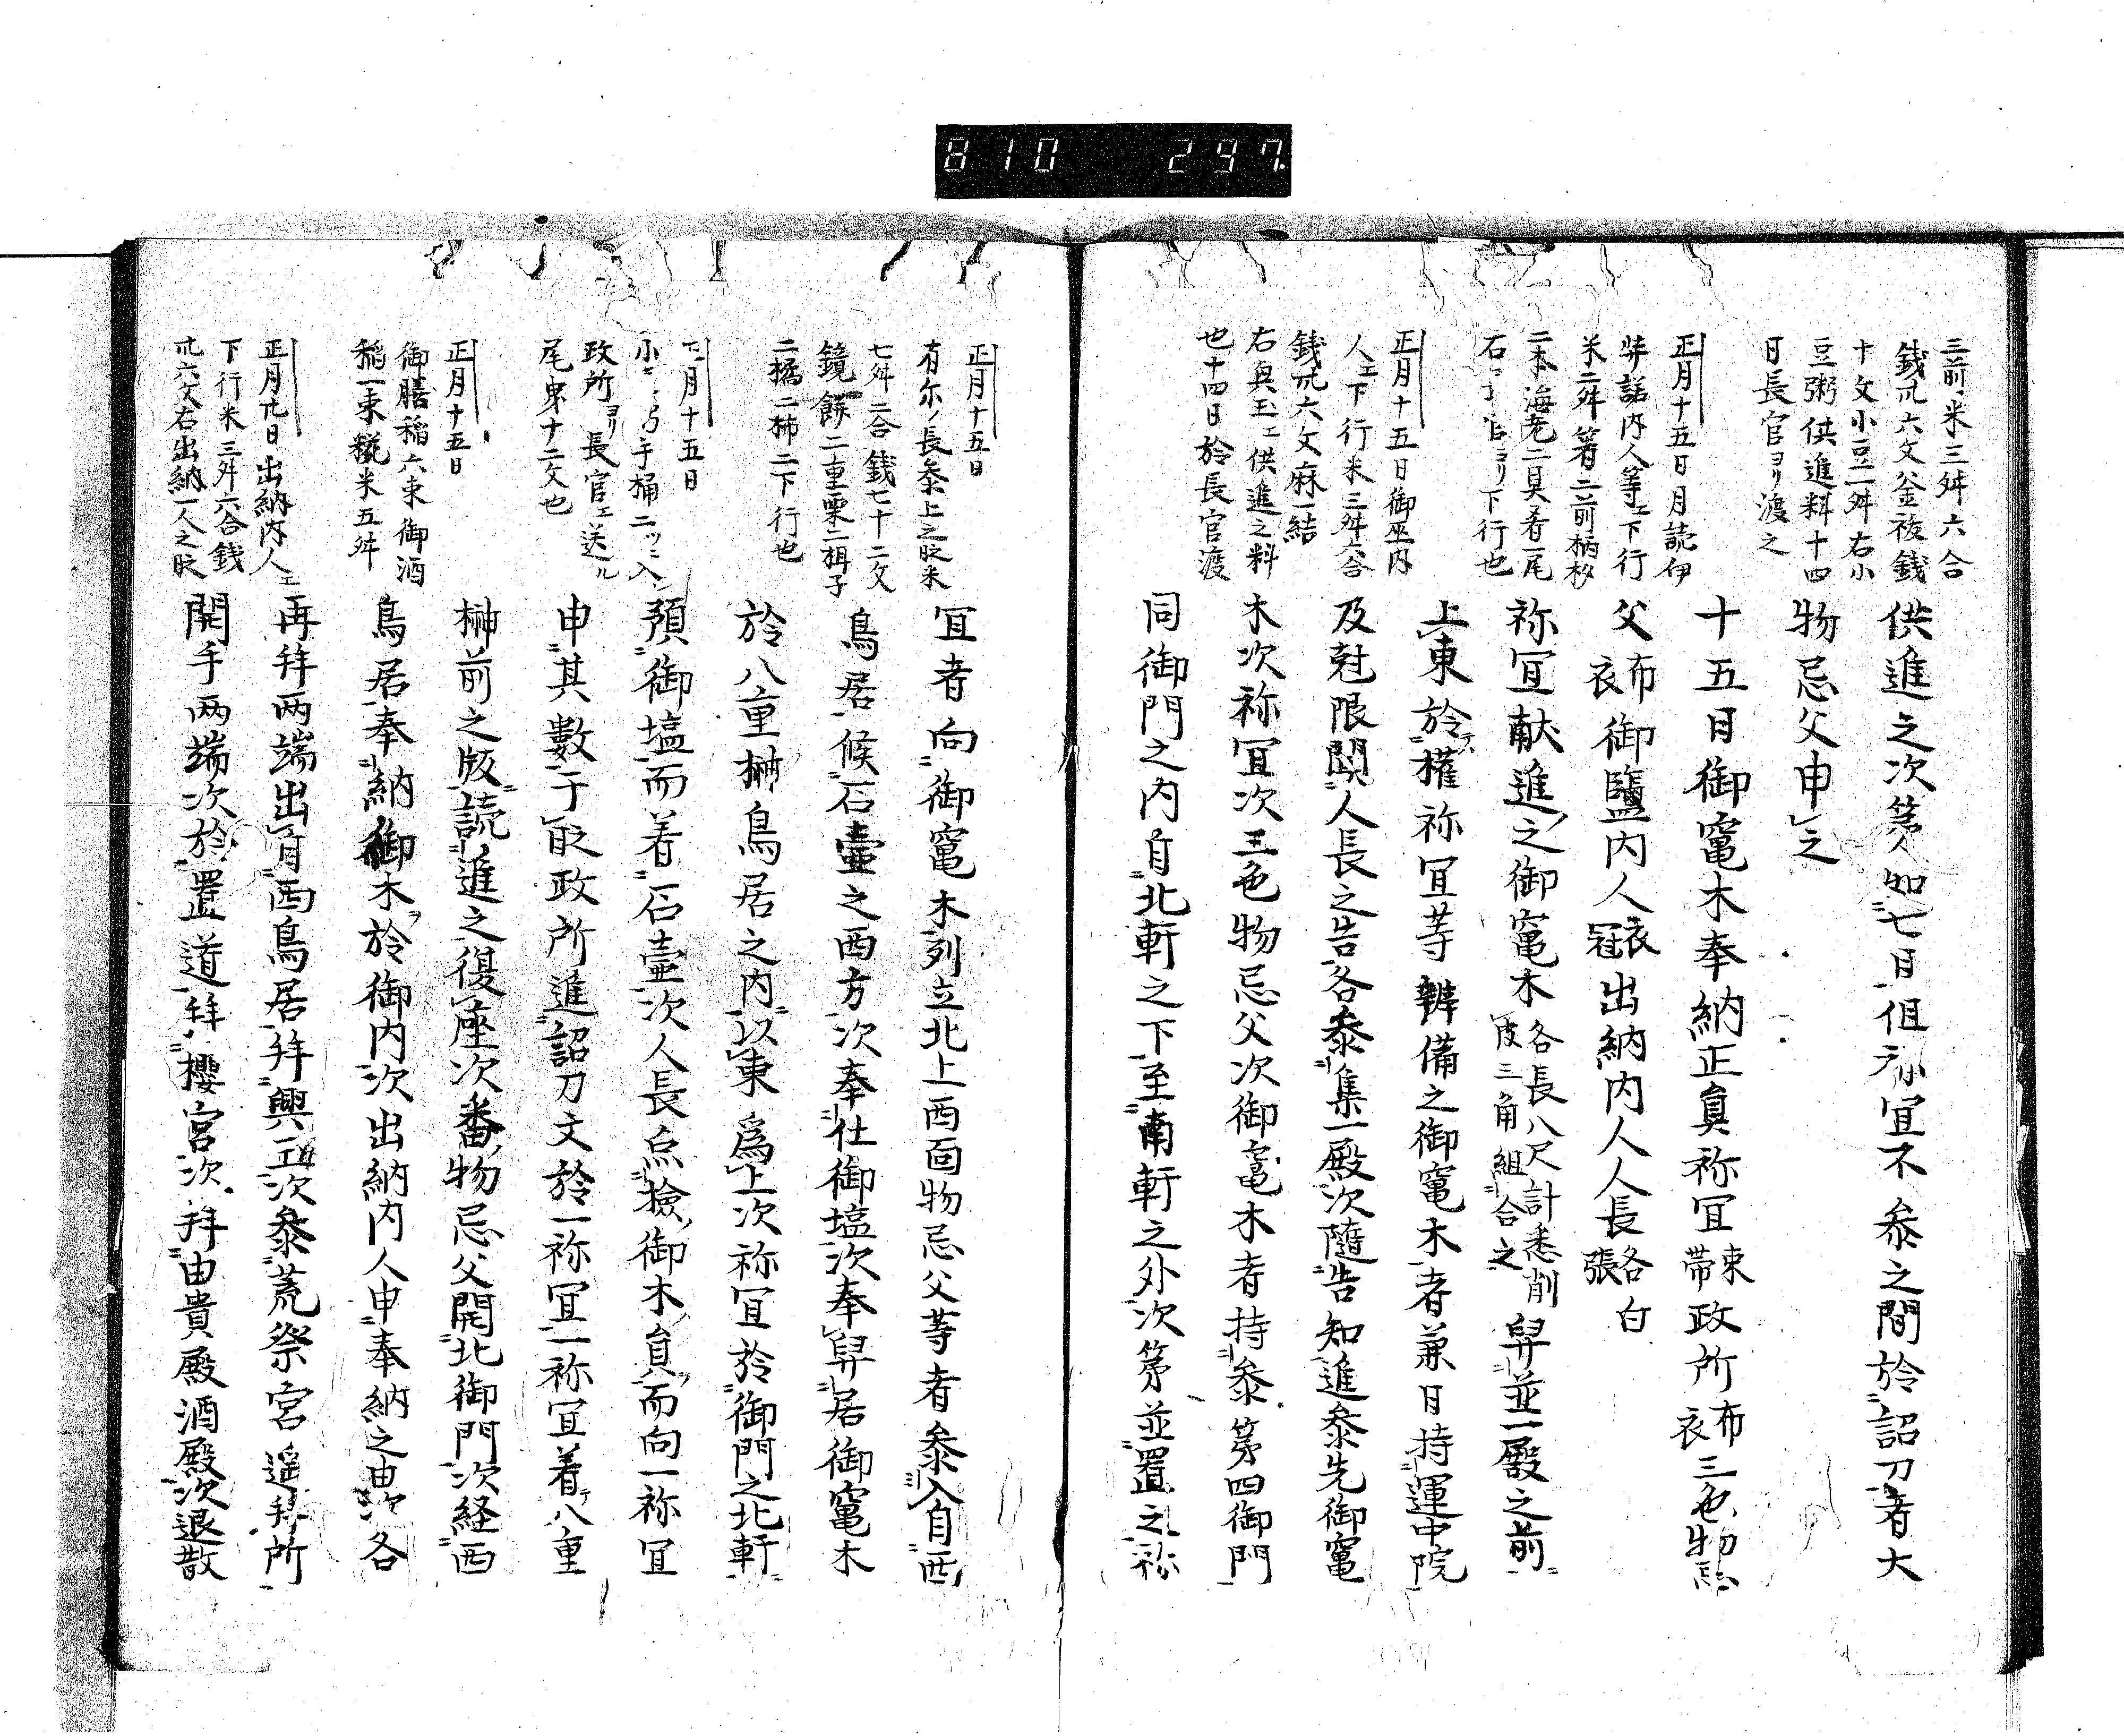 810 297.
三前米三舛六合
銭卅六文釜祓銭
十文小豆一舛右小
豆粥供進料十四
日長官ヨリ渡之
正月十五日月読伊
弉諾内人等エ下行
米二舛箸二前柄杓
二本海老二具肴一尾
下行也
正月十五日御巫内
人エ下行米三舛六合
銭卅六文麻一結
右興玉エ供進之料
也十四日於長官渡
供進之次第如七日但祢宜不参之間於詔刀者大
物忌父申之
十五日御竃木奉納正員祢宜束帯政所布衣三色物忌
父布衣御鹽内人衣冠出納内人人長各白張
祢宜献進之御竃木各長八尺計悉削皮三角組合之舁並一殿之前
上東於権祢宜等辨備之御竃木者兼日持運中院
及尅限聞人長之告各参集一殿次随告知進参先御竃
木次祢宜次三色物忌父次御竃木者持参第四御門
同御門之内自北軒之下至南軒之外次第並置之祢
正月十五日
有尓ノ長参上之時米
七舛二合銭七十二文
鏡餅二重栗二柑子
二橘二柿二下行也
正月十五日
手桶二ツニ入
政所ヨリ長官エ送ル
尾巣十二文也
正月十五日
御膳稲六束御酒
稲一束糀米五舛
正月廿日出納内人エ
下行米三舛六合銭
卅六文右出納一人之時
宜者向御竃木列立北上西面物忌父等者参入自西
鳥居候石壷之西方次奉仕御塩次奉舁居御竃木
於八重榊鳥居之内以東為上次祢宜於御門之北軒
預御塩而着石壷次人長点検御木員而向一祢宜
申其數于時政所進詔刀文於一祢宜一祢宜着八重
榊前之版読進之復座次番物忌父開北御門次経西
鳥居奉納御木於御内次出納内人申奉納之由次各
再拝両端出自西鳥居拝興玉次参荒祭宮遥拝所
開手両端次於置道拝櫻宮次拝由貴殿酒殿次退散